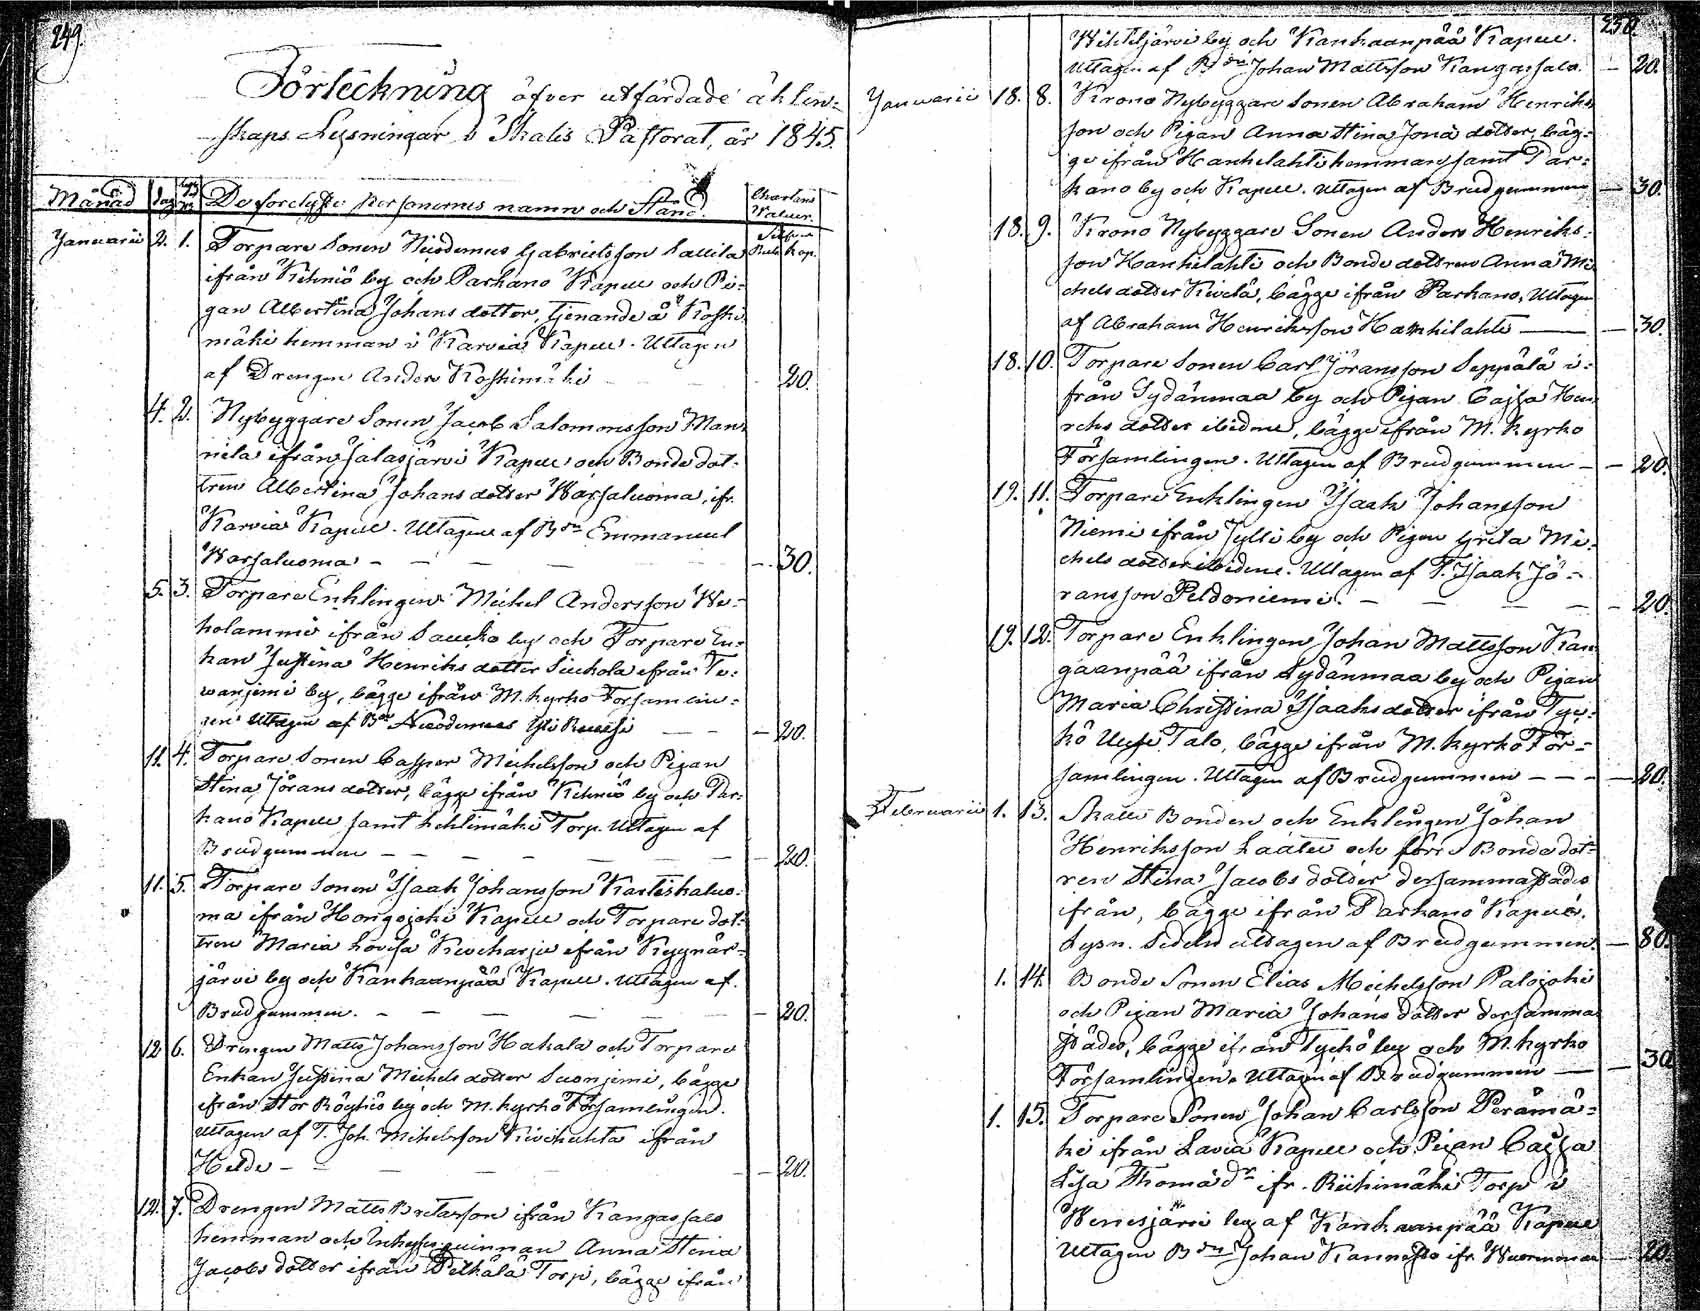 249.
Förteckning öfver utfärdade äkten-
skaps Lysningar i Ikalis Pastorat, år 1845.
Månad dag No De förelyste Personernes namn och Stånd. Chartans Valeur.
Silfver Rub. kop.
Januarii 2. 1. Torpare Sonen Nicodemus Gabrielsson
ifrån Kihniö by och Parkano Kapell och Pi-
gan Albertina Johans dotter, tjenande å Koski
mäki hemman i Karvia Kapell. Uttagen
af Drengen Anders Koskimäki 20.
4. 2. Nybyggare Sonen Jacob Salomonsson Man-
nila ifrån Jalasjärvi Kapell och Bonde dot-
tren Albertina Johans dotter Warsaluoma, ifr.
Karvia Kapell. Uttagen af Bdn Emmanuel
Warsaluoma - - - - 30.
5. 3. Torpare Enklingen Michel Andersson We-
holammi ifrån by och Torpare En-
kan Justina Henriks dotter ifrån Te-
vanjemi by, bägge ifrån M. kyrko Församlin-
gen Uttagen af Bdn Nicodemus 20.
11. 4. Torpare Sonen Casper Michelsson och Pigan
Stina Jörans dotter, bägge ifrån Kihniö by och Par-
kano Kapell samt Torp. Uttagen af
Brudgummen - - - - 20.
11. 5. Torpare Sonen Isaak Johansson
ma ifrån Hongojoki Kapell och Torpare dot-
tren Maria Lovisa Kiviharju ifrån Kyynär-
järvi by och Kankaanpää Kapell. Uttagen af
Brudgummen. - - - - 20.
12. 6. Drengen Matts Johansson Hakala och Torpare
Enkan Justina Michels dotter Suonjemi, bägge
ifrån Stor Röyhiö by och M. kyrko Församlingen.
Uttagen af T. Joh. Mihelsson ifrån
- - - - 20.
12. 7. Drengen Matts ifrån Kangassalo
hemman och Inhyses quinnan Anna Stina
Jacobs dotter ifrån Torp, bägge ifrån
250.
by och Kankaanpää Kapell.
Uttagen af Bdn Johan Mattsson Kangassalo. 20.
Januarii 18. 8. Krono Nybyggare Sonen Abraham Henriks
son och Pigan Anna Stina Jona dotter, bäg-
ge ifrån Hankilahti hemman samt Par-
kano by och Kapell. Uttagen af Brudgummen 30.
18. 9. Krono Nybyggare Sonen Anders Henriks-
son Hankilahti och Bonde dottren Anna Mi-
chels dotter Kivelä, bägge ifrån Parkano, Uttagen
af Abraham Henriksson Hankilahti 30.
18. 10. Torpare Sonen Carl Jöransson Seppälä i-
från Sydänmaa by och Pigan Cajsa Hen-
richs dotter ibidme, bägge ifrån M. kyrko
Församlingen. Uttagen af Brudgummen - 20.
19. 11. Torpare Enklingen Isaak Johansson
Niemi ifrån Jylli by och Pigan Greta Mi-
chels dotter ibidme. Uttagen af T. Isaak Jö-
ransson Peldoniemi. - - - 20.
19. 12. Torpare Enklingen Johan Mattsson Kan-
gaanpää ifrån Sydänmaa by och Pigan
Maria Christina Isaaks dotter ifrån Tyc-
kö Talo, bägge ifrån M. kyrko För-
samlingen. Uttagen af Brudgummen - - - 20.
Februarii 1. 13. Skatte Bonden och Enklingen Johan
Henriksson och förre Bonde dot-
ren Stina Jacobs dotter dersammastädes
ifrån, bägge ifrån Parkano Kapell.
Lysn. Sedeln uttagen af Brudgummen. 80.
1. 14. Bonde Sonen Elias Michelsson Palojoki
och Pigan Maria Johans dotter dersamma
städes, bägge ifrån Tyckö by och M. kyrko
Församlingen. Uttagen af Brudgummen 30
1. 15. Torpare Sonen Johan Carlsson Perämä-
ki ifrån Lavia Kapell och Pigan Cajsa
Lisa Thomæ dr ifr. Riihimäki Torp i
Wenesjärvi by af Kankaanpää Kapell
Uttagen Bdn Johan ifr. 20.